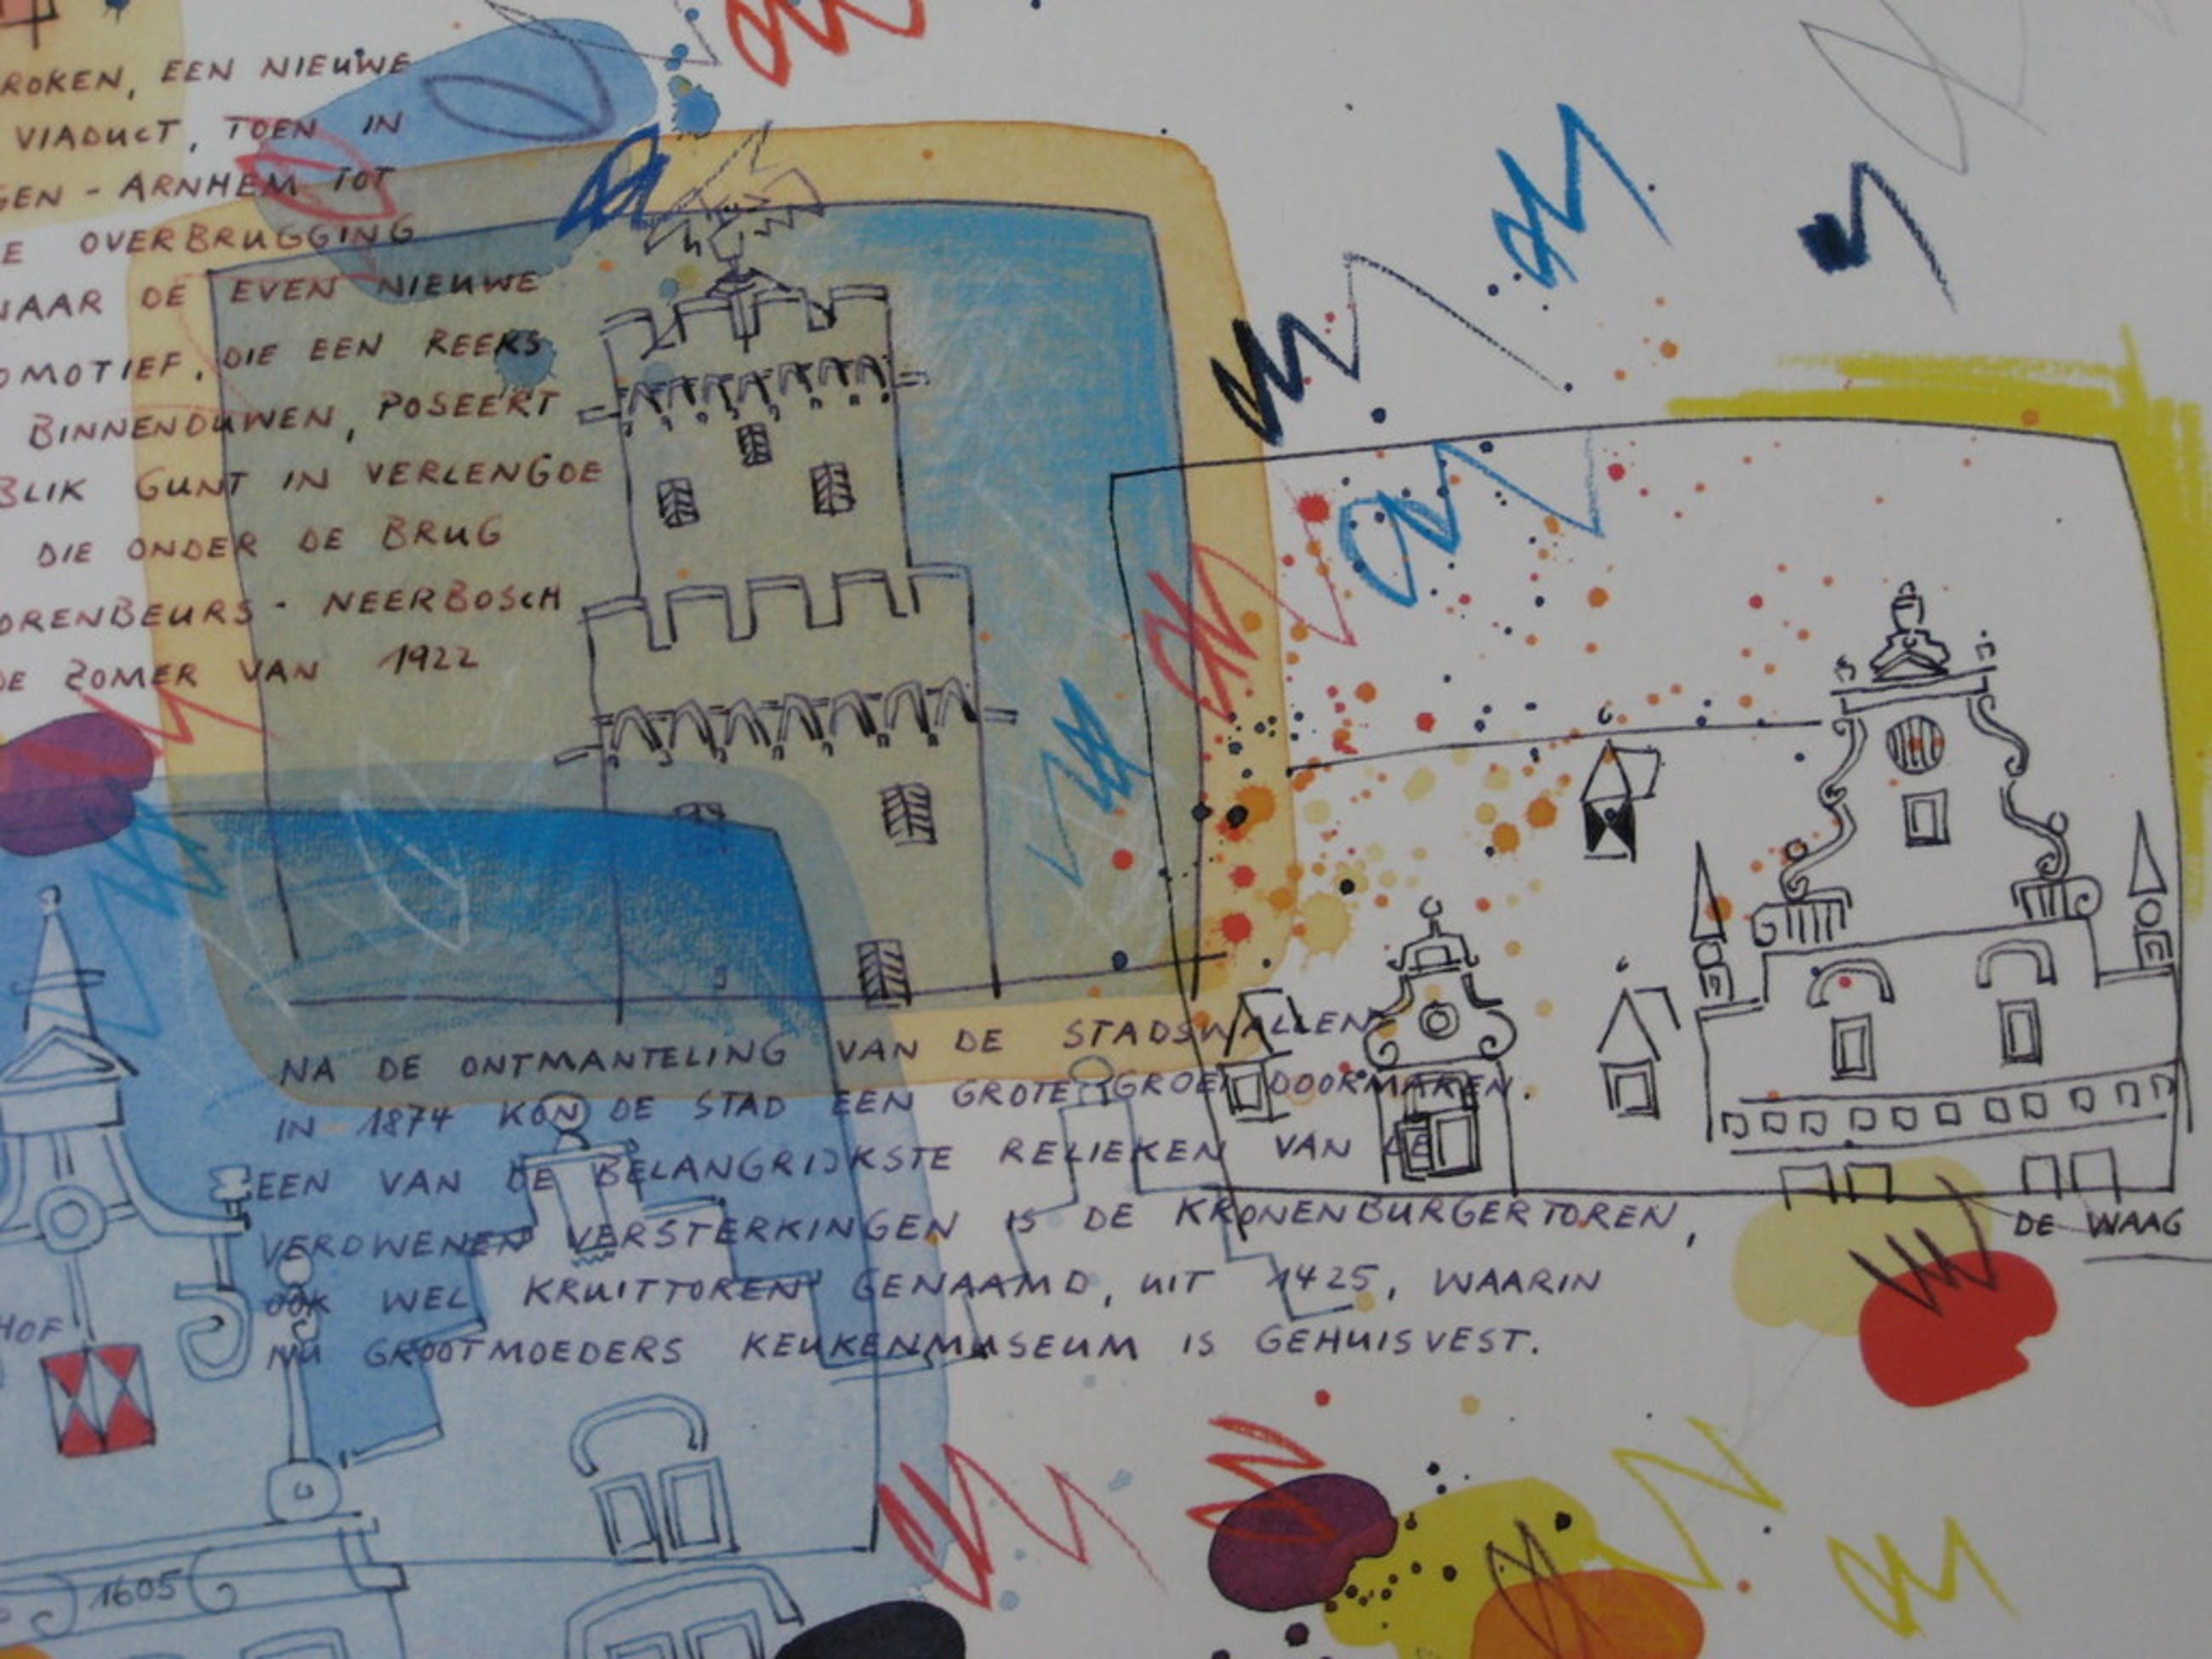 ROKEN, EEN NIEUWE
VIADUCT, TOEN IN
GEN - ARNHEM TOT
E OVERBRUGGING
NAAR DE EVEN NIEUWE
OMOTIEF. DIE EEN REEKS
BINNENDUWEN, POSEERT
BLIK GUNT IN VERLENGDE
DIE ONDER DE BRUG
ORENBEURS - NEERBOSCH
DE ZOMER VAN 1922
NA DE ONTMANTELING VAN DE STADSWALLEN
IN 1874 KON DE STAD EEN GROTE GROEI DOORMAKEN.
EEN VAN DE BELANGRIJKSTE RELIEKEN VAN DE
VERDWENEN VERSTERKINGEN IS DE KRONENBURGERTOREN,
OOK WEL KRUITTOREN GENAAMD, UIT 1425, WAARIN
NU GROOTMOEDERS KEUKENMUSEUM IS GEHUISVEST.
DE WAAG
HOF
1605